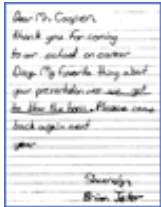 Dear Mr. Cooper,
thank you for coming
to our school on career
Day. My favorite thing about
your presentation was we got
to the. Please come
back again next
year
Sincerely,
Brian